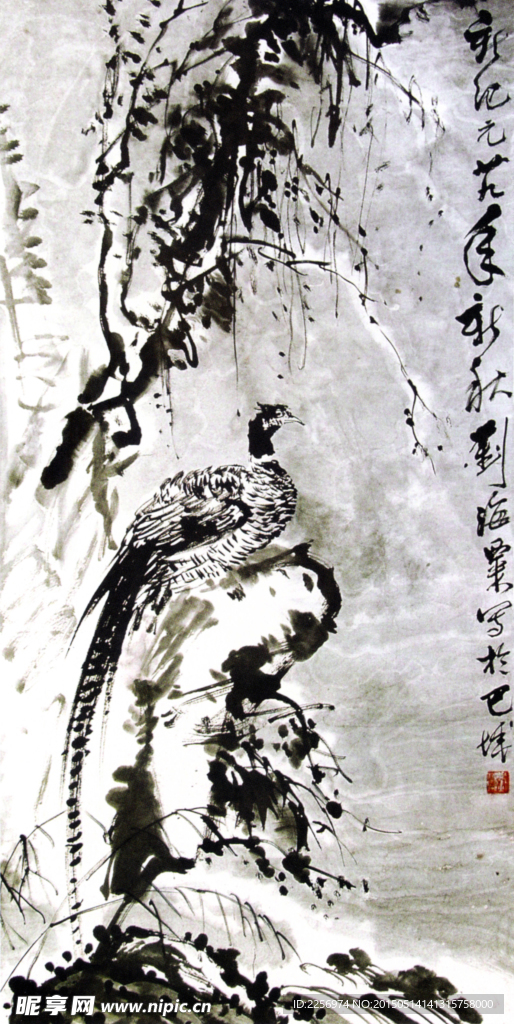 新紀元廿九年新秋劉海粟写於巴城
昵享网 www.nipic.cn
ID:2256974 NO:20150514141315758000